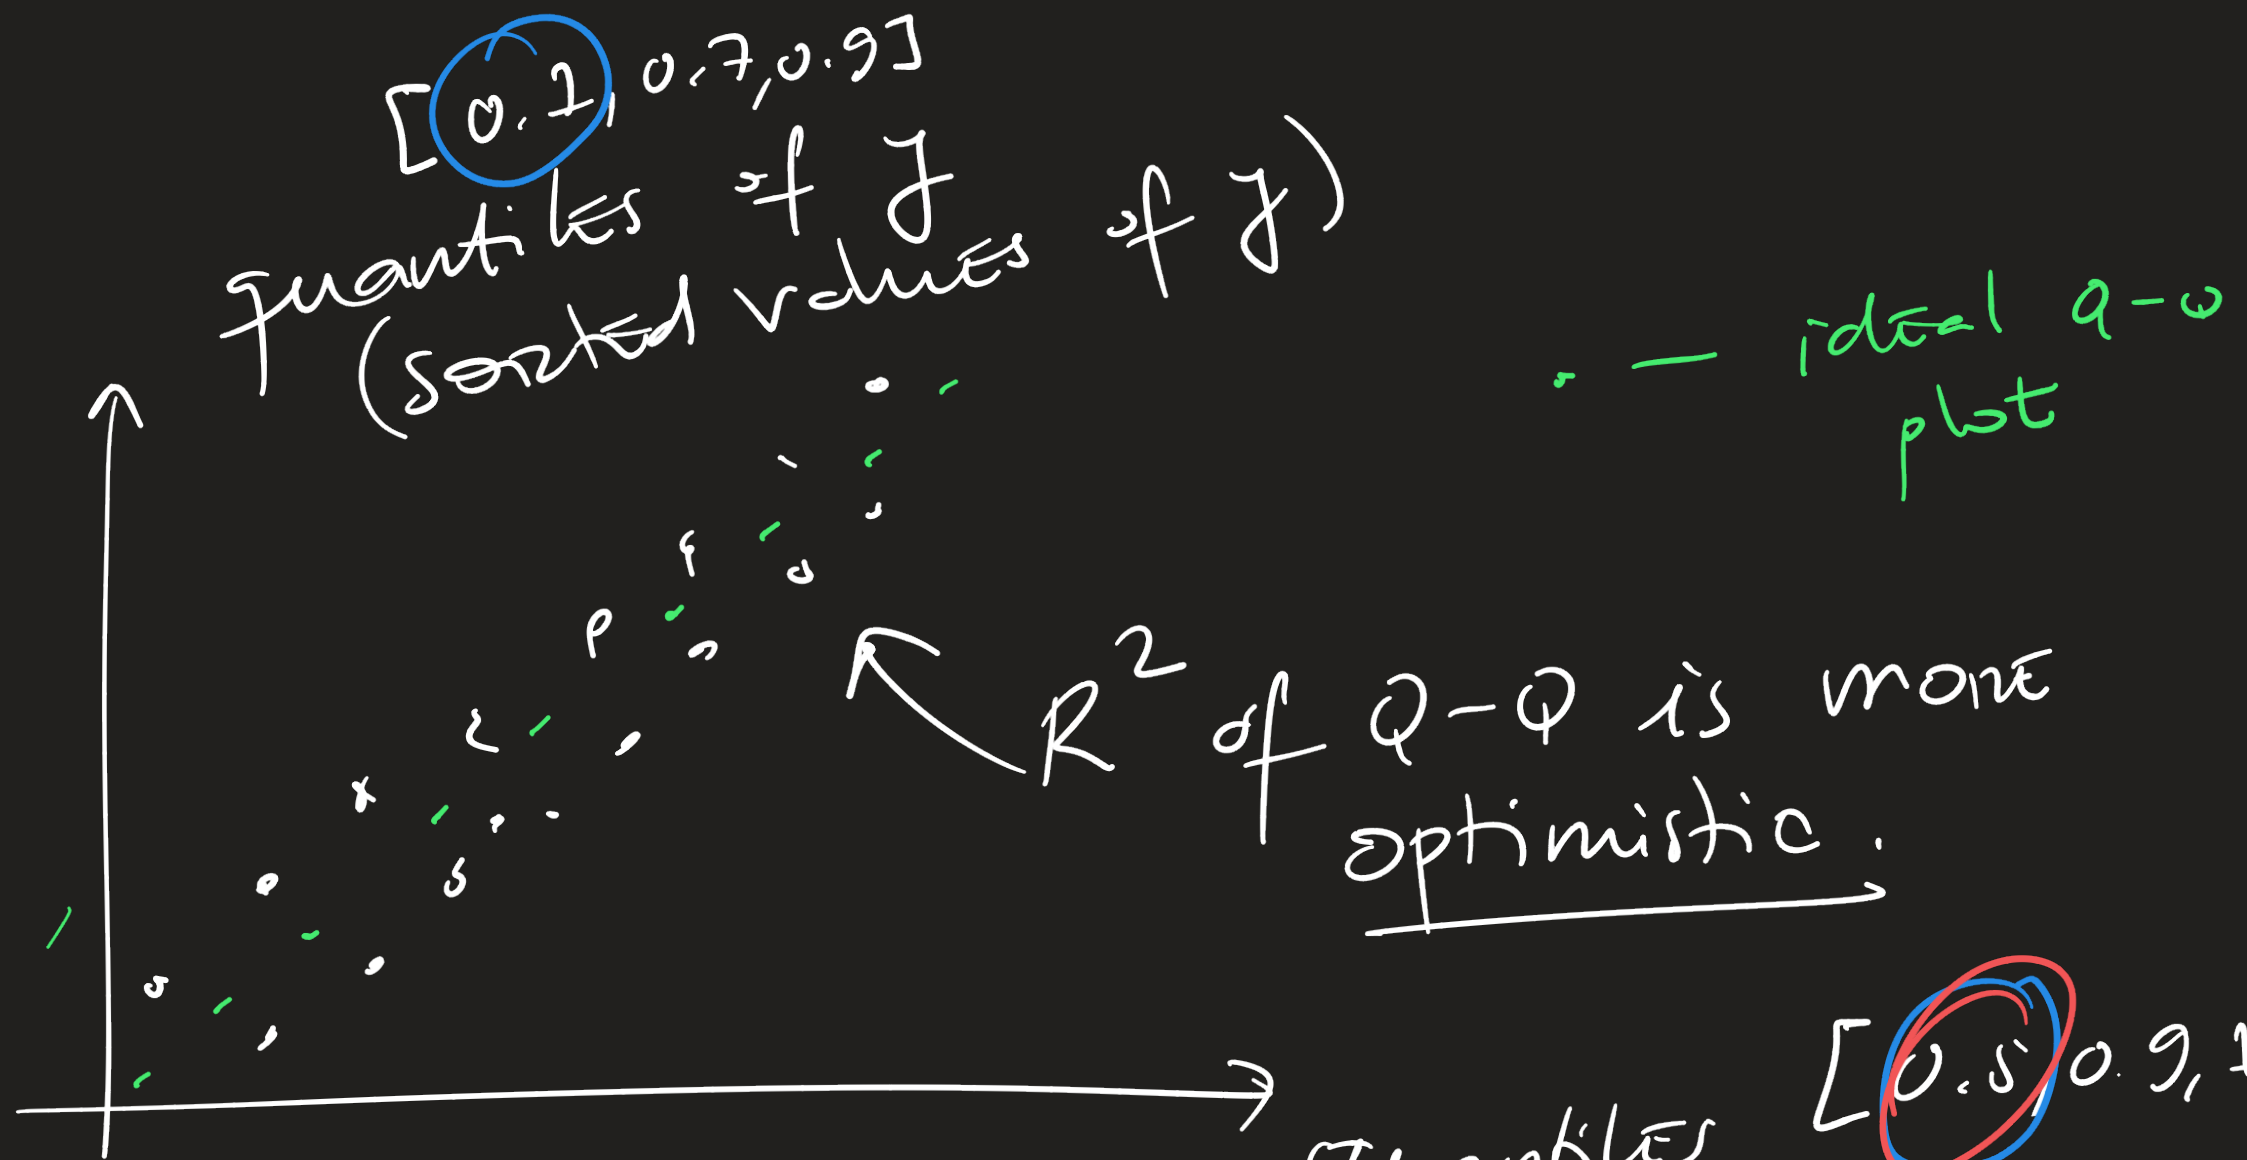 [0.1, 0.7, 0.9]
quantiles of y
(sorted values of y)
ideal Q-Q
plot
R² of Q-Q is more
optimistic.
[0.5, 0.9, 1
quantiles